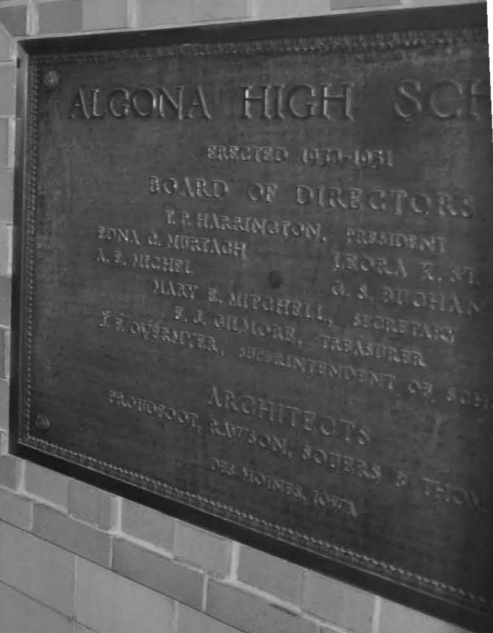 ALGONA HIGH SCH
ERECTED 1930-1931
BOARD OF DIRECTORS
T. P. HARRINGTON, PRESIDENT
EDNA G. MURTAGH LEORA K. ST.
A. E. MICHEL G. S. BUCHAN
MARY E. MITCHELL, SECRETARY
E. J. GILMORE, TREASURER
J. F. OVERMYER, SUPERINTENDENT OF SCH
ARCHITECTS
PROUDFOOT, RAWSON, SOUERS & THOM
DES MOINES, IOWA